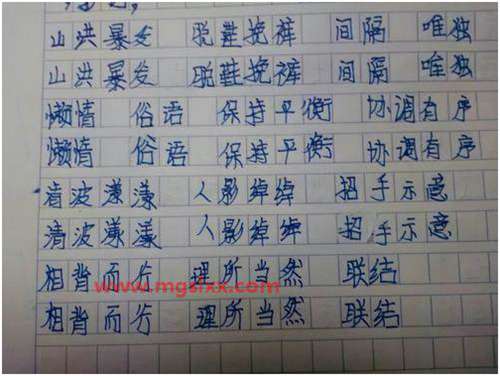 山洪暴发 脱鞋挽裤 间隔 唯独
山洪暴发 脱鞋挽裤 间隔 唯独
懒情 俗语 保持平衡 协调有序
懒情 俗语 保持平衡 协调有序
清波漾漾 人影绰绰 招手示意
清波漾漾 人影绰绰 招手示意
相背而行 理所当然 联结
www.mgsfxx.com
相背而行 理所当然 联结